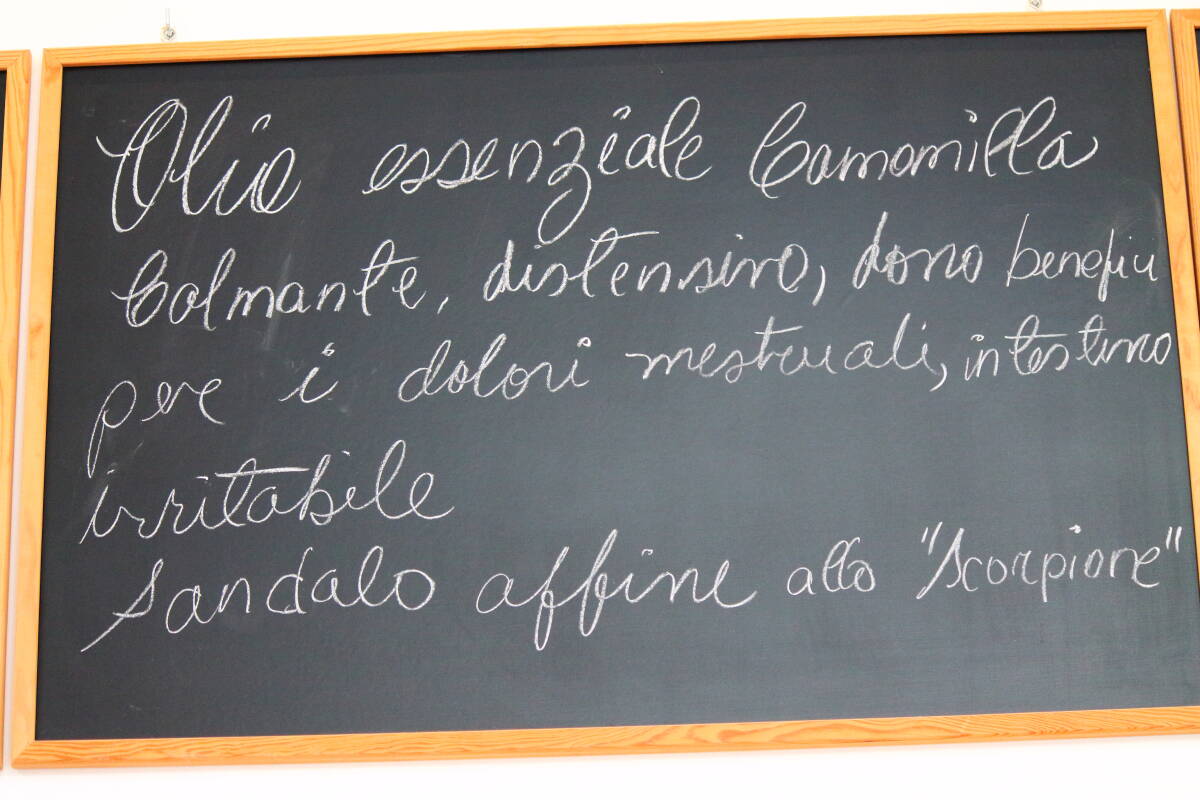 Olio essenziale Camomilla
Calmante, distensivo, dono benefici
per i dolori mestruali, intestino
irritabile
Sandalo affine allo "Scorpione"